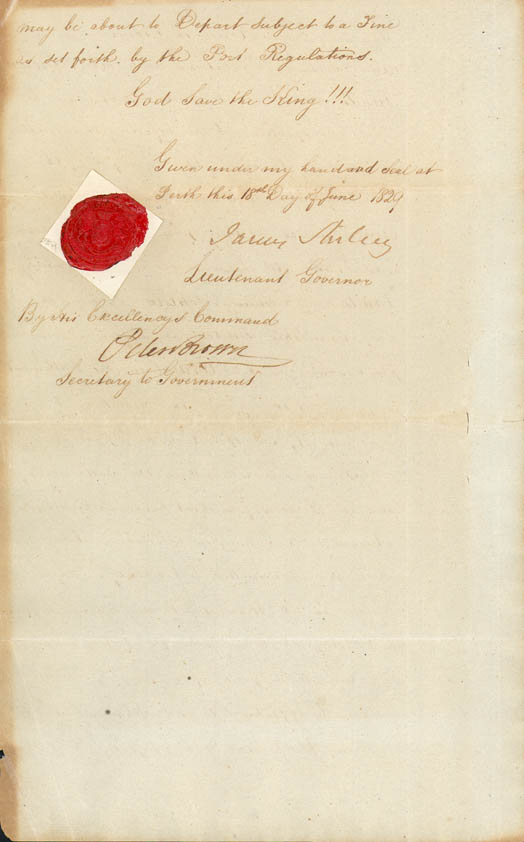 may be about to Depart subject to a Fine
as set forth by the Port Regulations.
God Save the King!!!
Given under my hand and Seal at
Perth this 18th Day of June 1829
James Stirling
Lieutenant Governor
By His Excellencys Command
Peter Brown
Secretary to Government